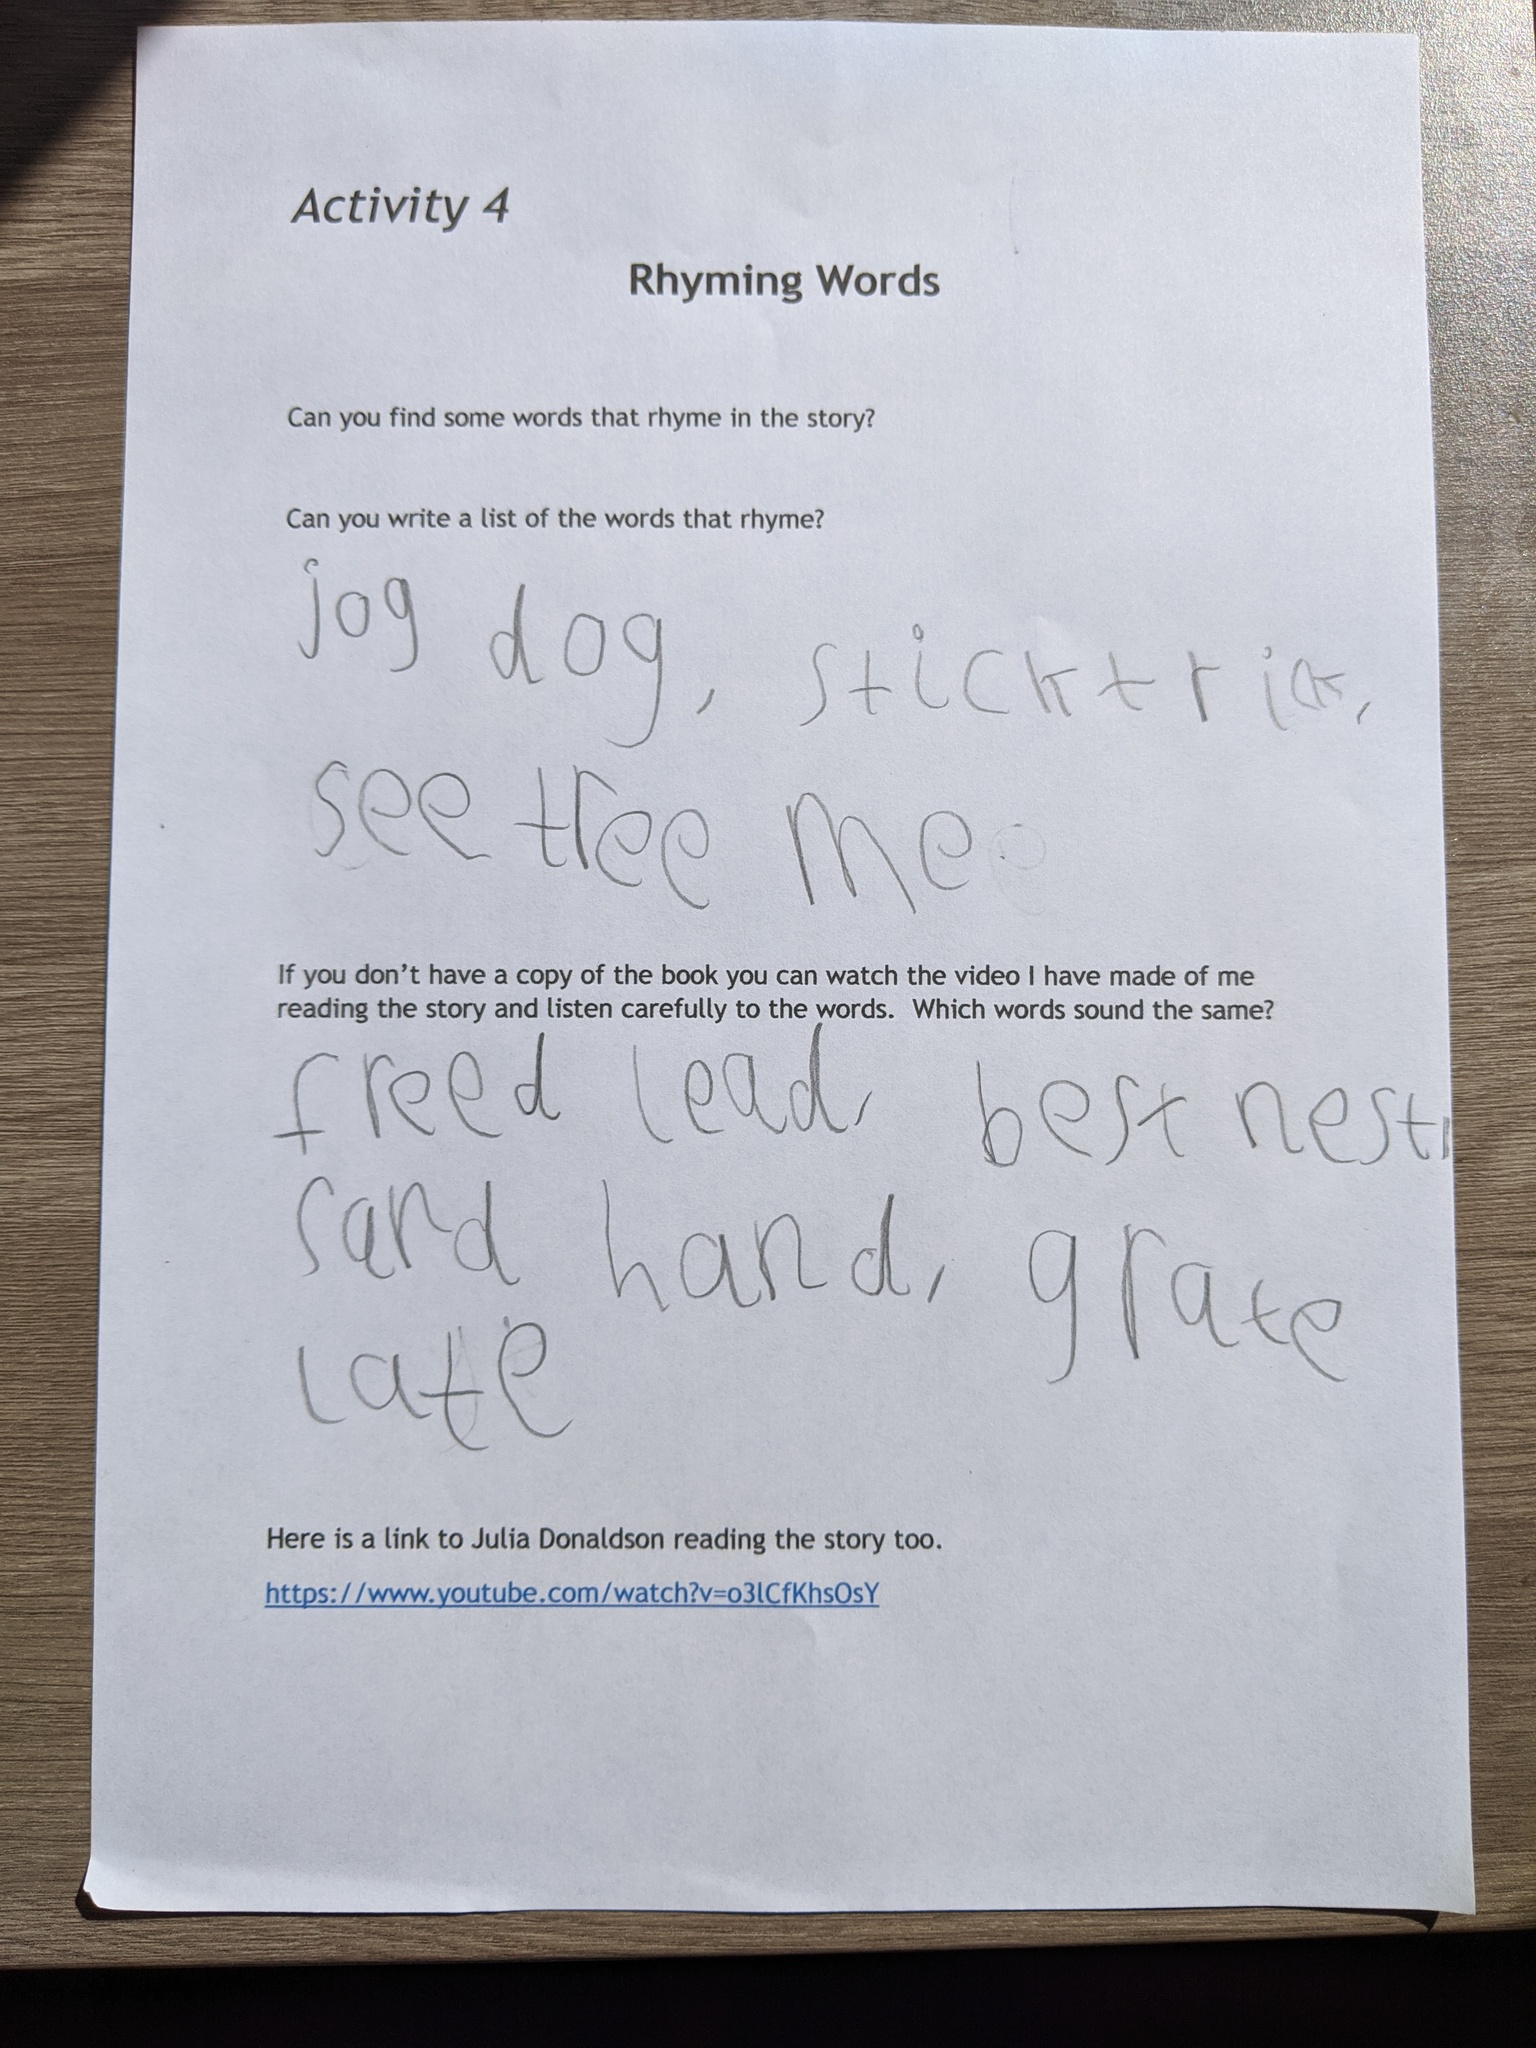 Activity 4
Rhyming Words
Can you find some words that rhyme in the story?
Can you write a list of the words that rhyme?
jog dog, stick trick,
see tree me
If you don't have a copy of the book you can watch the video I have made of me
reading the story and listen carefully to the words. Which words sound the same?
freed lead, best nest,
sand hand, grate
late
Here is a link to Julia Donaldson reading the story too.
https://www.youtube.com/watch?v=o3lCfKhsOsY